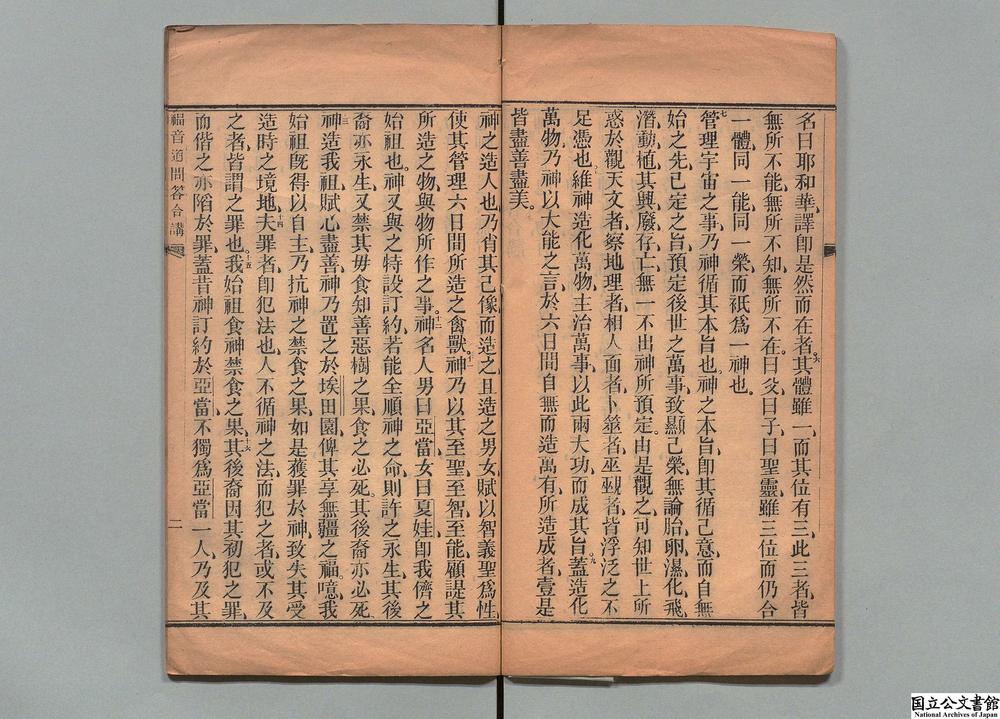 名曰耶和華、譯卽是然而在者、六其體雖一、而其位有三、此三者、皆
無所不能、無所不知、無所不在、曰父、曰子、曰聖靈、雖三位、而仍合
一體、同一能、同一榮、而祇爲一神也。
七管理宇宙之事、乃神循其本旨也、神之本旨、卽其循己意、而自無
始之先、已定之旨、預定後世之萬事、致顯己榮、無論胎卵濕化、飛
潛動植、其興廢存亡、無一不出神所預定。由是觀之、可知世上所
惑於觀天文者、察地理者、相人面者、卜筮者、巫覡者、皆浮泛之不
足憑也、維神造化萬物、主治萬事、以此兩大功、而成其旨。九蓋造化
萬物、乃神以大能之言、於六日間、自無而造萬有、所造成者、壹是
皆盡善盡美。
神之造人也、乃肖其己像而造之、且造之男女、賦以智義聖爲性、
使其管理六日間所造之禽獸、十一神乃以其至聖至智至能、顧諟其
所造之物、與物所作之事、十二神名人男曰亞當、女曰夏娃、卽我儕之
始祖也、神又與之特設訂約、若能全順神之命、則許之永生、其後
裔亦永生、又禁其毋食知善惡樹之果、食之必死。其後裔亦必死、
三神造我祖、賦心盡善、神乃置之於埃田園、俾其享無疆之福。噫、我
始祖旣得以自主、乃抗神之禁、食禁食之果、如是獲罪於神、致失其受
造時之境地、十四夫罪者、卽犯法也、人不循神之法、而犯之者、或不及
之者、皆謂之罪也。十五我始祖食神禁食之果、十六其後裔因其初犯之罪、
而偕之亦陷於罪、蓋昔神訂約於亞當、不獨爲亞當一人、乃及其
福音道問答合講
二
国立公文書館
National Archives of Japan